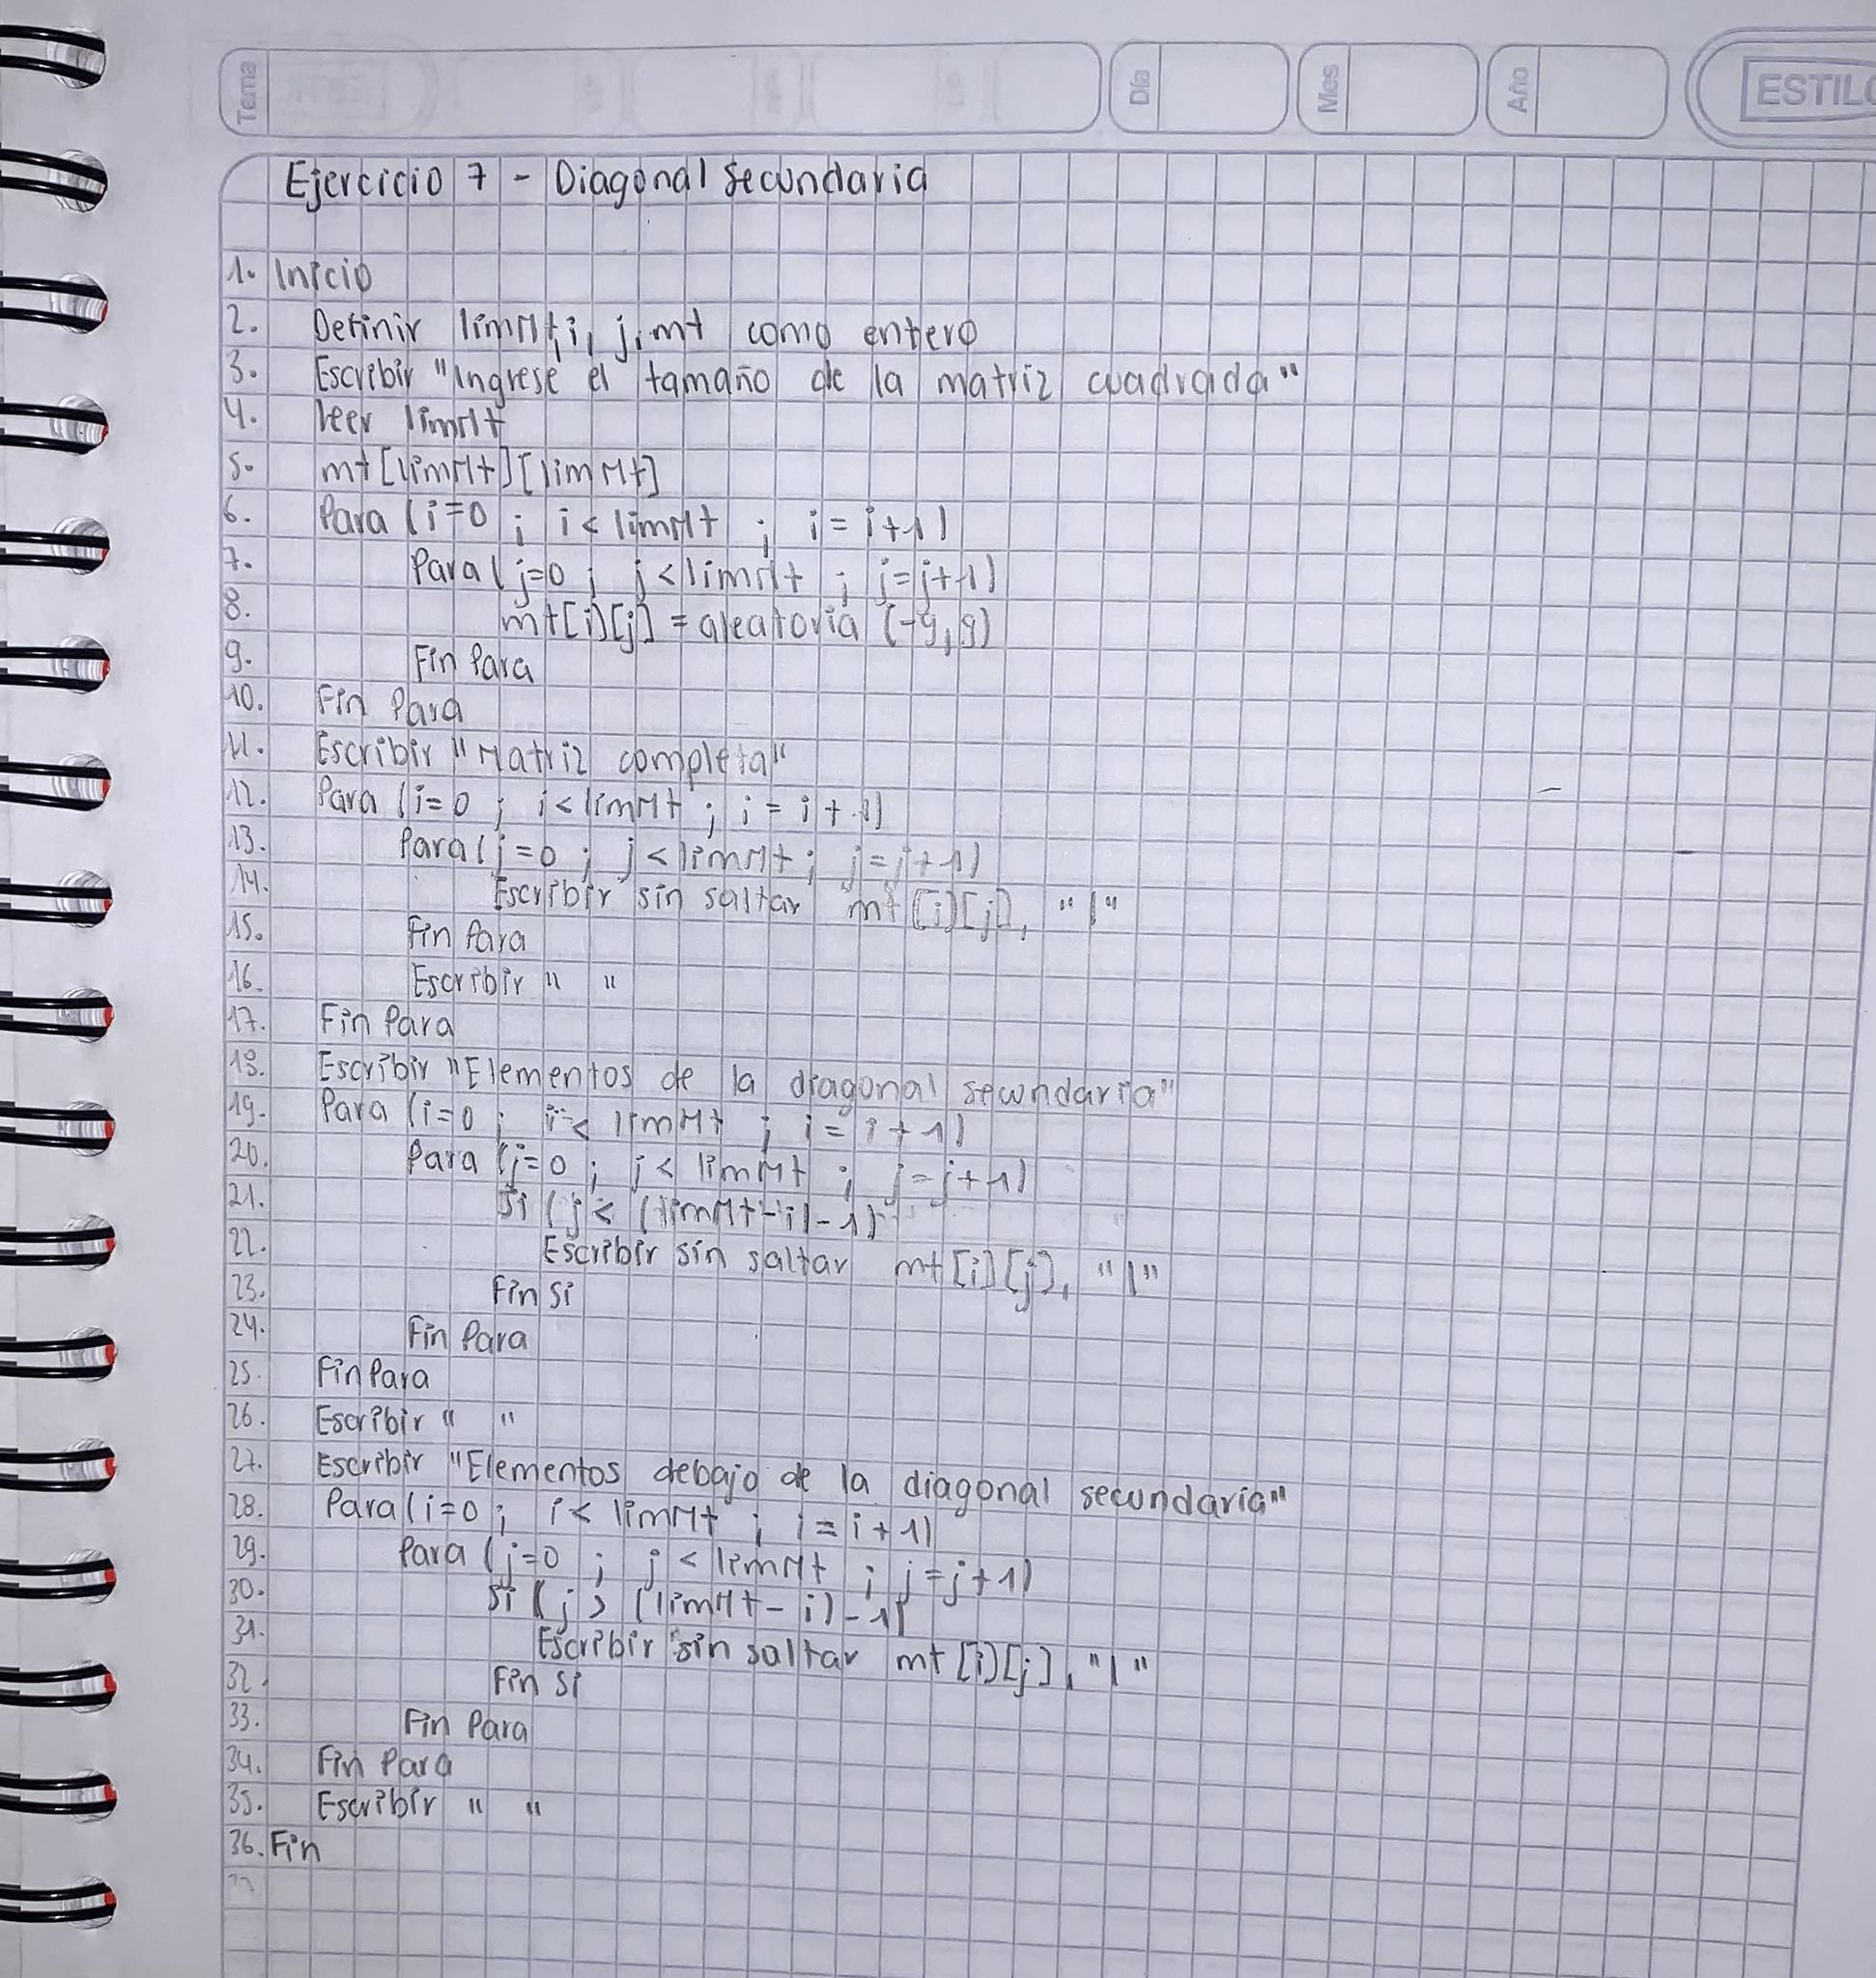 Tema
Día
Mes
Año
Ejercicio 7 - Diagonal secundaria
1. Inicio
2. Definir limMt, i, j, mt como entero
3. Escribir "Ingrese el tamaño de la matriz cuadrada"
4. leer limMt
5. mt[limMt][limMt]
6. Para (i=0 ; i < limMt ; i = i+1)
7. Para (j=0 ; j < limMt ; j=j+1)
8. mt[i][j] = aleatoria (-9,9)
9. Fin Para
10. Fin Para
11. Escribir "Matriz completa"
12. Para (i=0 ; i < limMt ; i = i + 1)
13. Para (j=0 ; j < limMt ; j=j+1)
14. Escribir sin saltar mt[i][j], "|"
15. Fin Para
16. Escribir " "
17. Fin Para
18. Escribir "Elementos de la diagonal secundaria"
19. Para (i=0 ; i < limMt ; i = i + 1)
20. Para (j=0 ; j < limMt ; j=j+1)
21. Si (j < (limMt-i)-1)
22. Escribir sin saltar mt[i][j], "|"
23. Fin Si
24. Fin Para
25. Fin Para
26. Escribir " "
27. Escribir "Elementos debajo de la diagonal secundaria"
28. Para (i=0 ; i < limMt ; i = i + 1)
29. Para (j=0 ; j < limMt ; j=j+1)
30. Si (j > (limMt-i)-1)
31. Escribir sin saltar mt[i][j], "|"
32. Fin Si
33. Fin Para
34. Fin Para
35. Escribir " "
36. Fin